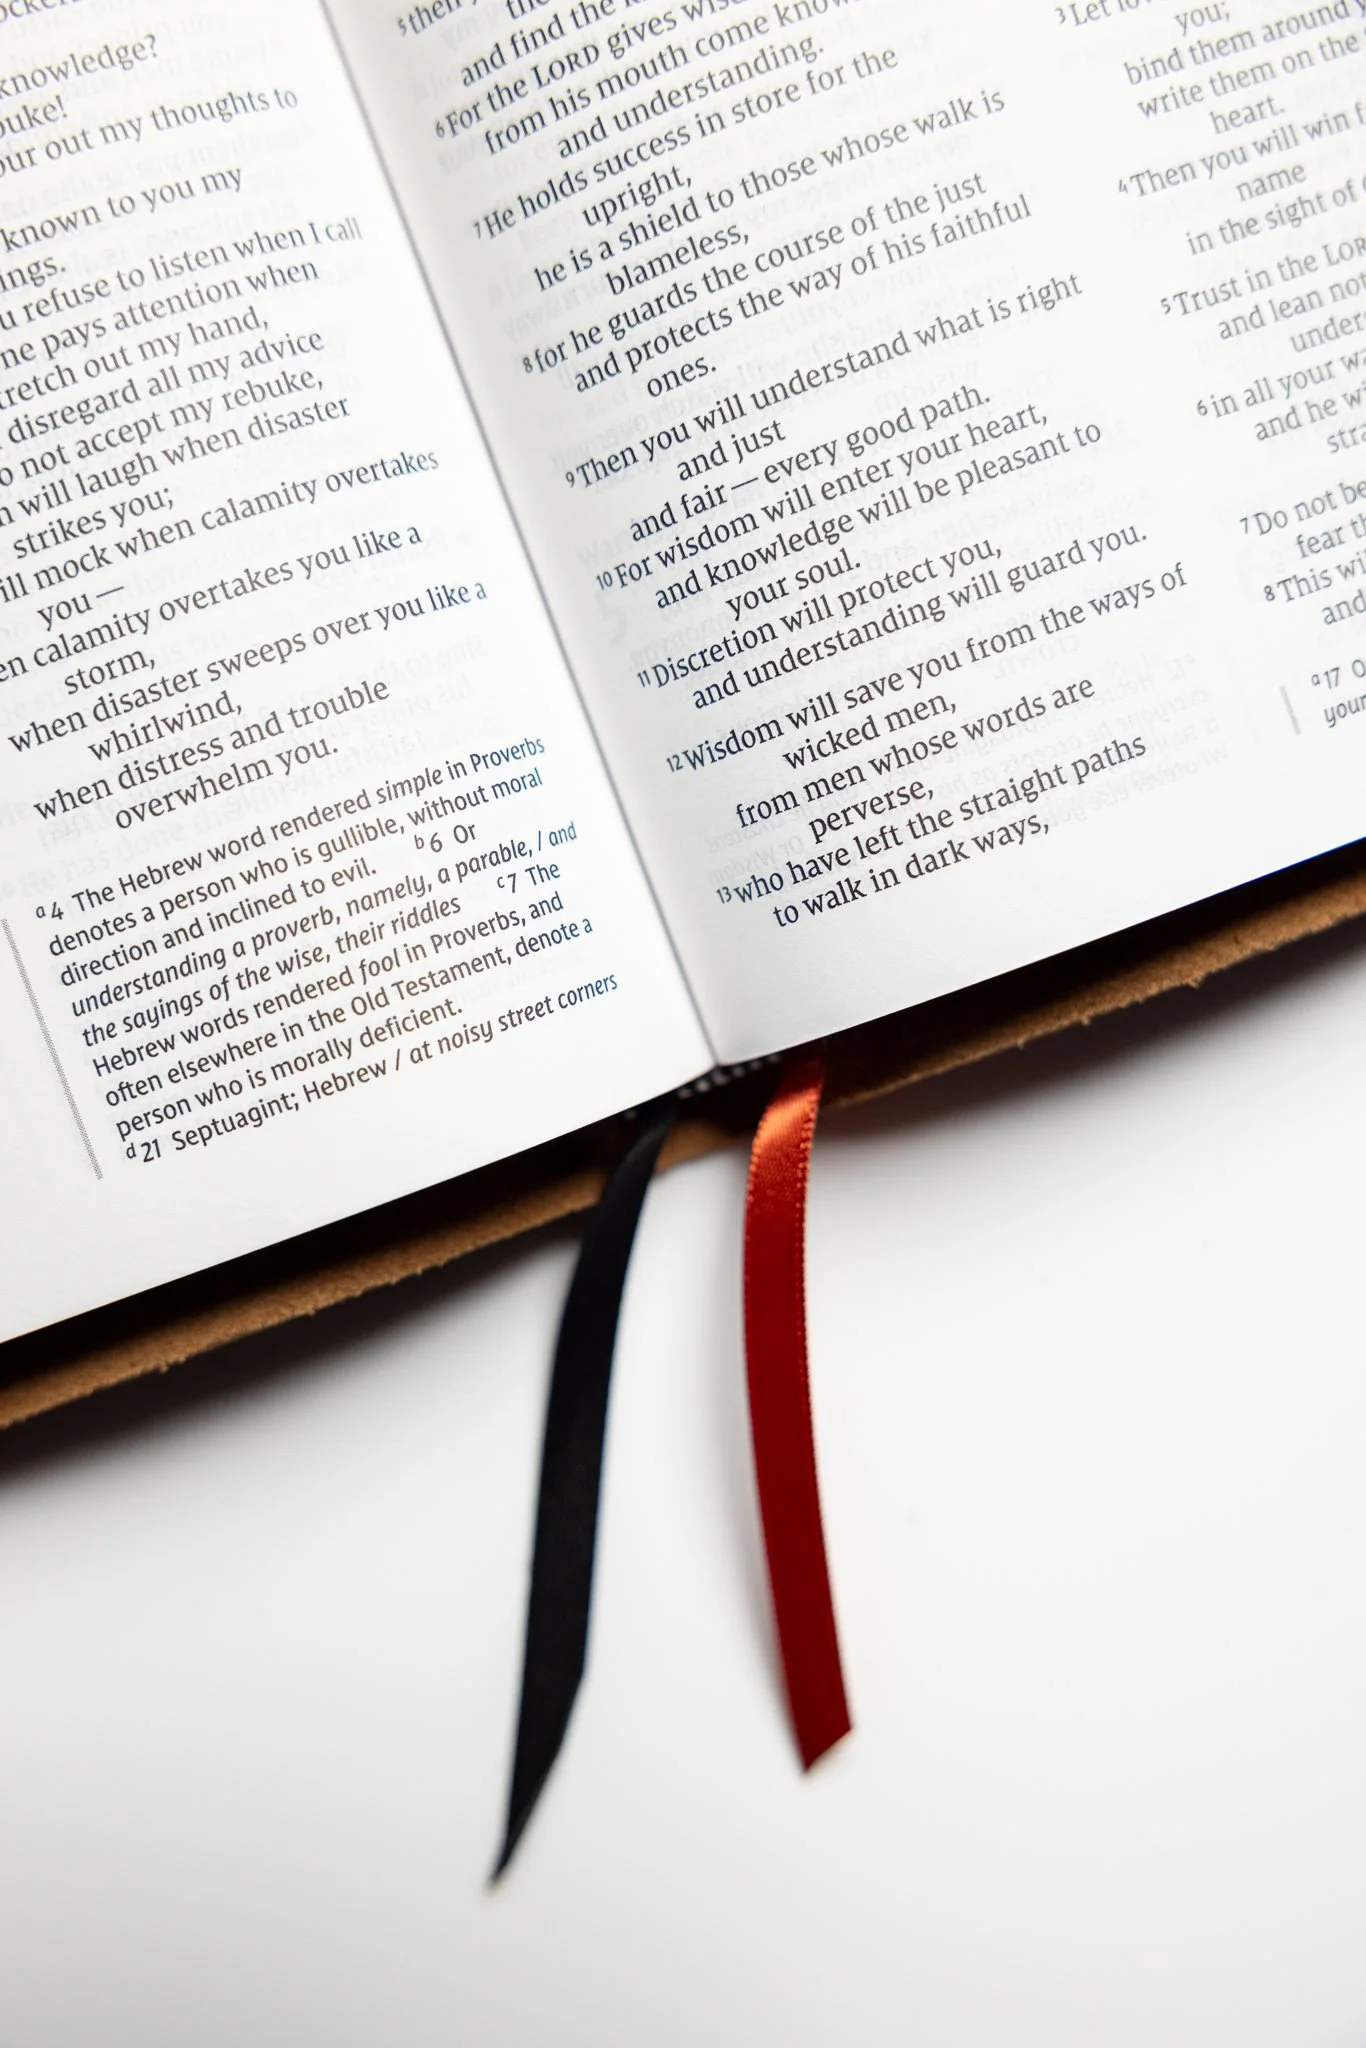 knowledge?
my thoughts to
known to you my
refuse to listen when I call
pays attention when
out my hand,
disregard all my advice
not accept my rebuke,
will laugh when disaster
strikes you;
mock when calamity overtakes
you —
calamity overtakes you like a
storm,
when disaster sweeps over you like a
whirlwind,
when distress and trouble
overwhelm you.
a4 The Hebrew word rendered simple in Proverbs
denotes a person who is gullible, without moral
direction and inclined to evil. b6 Or
understanding a proverb, namely, a parable, / and
the sayings of the wise, their riddles c7 The
Hebrew words rendered fool in Proverbs, and
often elsewhere in the Old Testament, denote a
person who is morally deficient.
d21 Septuagint; Hebrew / at noisy street corners
5 then
the
and find the
6 For the LORD gives
from his mouth come
and understanding.
7 He holds success in store for the
upright,
he is a shield to those whose walk is
blameless,
8 for he guards the course of the just
and protects the way of his faithful
ones.
9 Then you will understand what is right
and just
and fair — every good path.
10 For wisdom will enter your heart,
and knowledge will be pleasant to
your soul.
11 Discretion will protect you,
and understanding will guard you.
12 Wisdom will save you from the ways of
wicked men,
from men whose words are
perverse,
13 who have left the straight paths
to walk in dark ways,
3 Let
you;
bind them around
write them on the
heart.
4 Then you will win
name
in the sight of
5 Trust in the LORD
and lean not
6 in all your
and he
7 Do not be
fear
8 This
and
a17
your